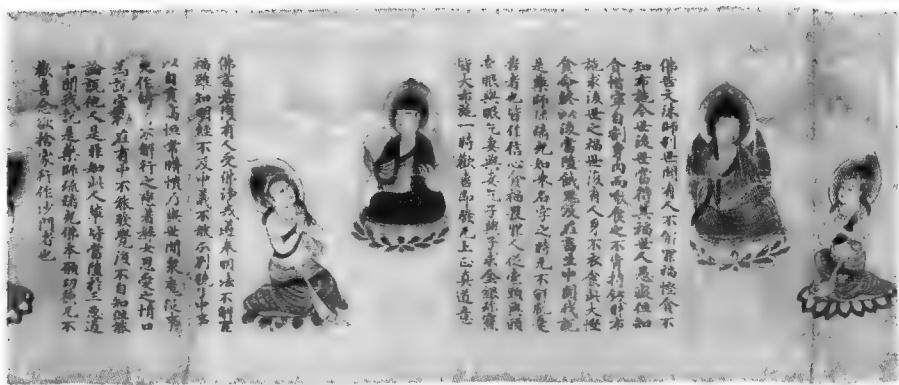 佛告文殊師利世間有人不解罪福慳貪不
知布施今世後世當得其福世人愚癡但知
貪惜寧自割身肉而噉食之不肯持錢財布
施求後世之福世復有人身不衣食此大慳
貪命終以後當墮餓鬼及在畜生中聞我說
是藥師瑠璃光如來名字之時无不解脫憂
苦者也皆作信心貪福畏罪人從索頭與頭
索眼與眼乞妻與妻乞子與子求金銀珍寶
皆大布施一時歡喜即發无上正真道意
佛言若復有人受佛淨戒遵奉明法不解罪
福雖知明經不及中義不能分別曉了中事
以自貢高恒常瞋憒乃與世間衆魔從事
更作縛著不解行之戀著婦女恩愛之情口
為說空行在有中不能發覺復不自知但能
論說他人是非如此人輩皆當墮於三惡道
中聞我說是藥師瑠璃光佛本願功德无不
歡喜念欲捨家行作沙門者也